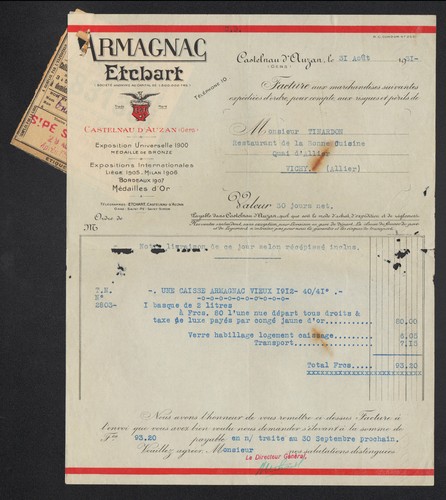 ARMAGNAC
Etchart
CASTELNAU D'AUZAN (Gers)
Exposition Universelle 1900
MÉDAILLE DE BRONZE
Expositions Internationales
LIÈGE 1905, MILAN 1906
BORDEAUX 1907
Médailles d'Or
TÉLÉPHONE 10
Castelnau d'Auzan, le 21 Août 1931-
(GERS)
Facture aux marchandises suivantes
expédiées d'ordre, pour compte, aux risques et périls de
Monsieur
Restaurant de la Bonne Cuisine
Quai d'Allier
VICHY (Allier)
Valeur 30 jours net.
Ordre de
M
Notre livraison de ce jour selon récépissé inclus.
T.N.
N°
2805-
-. UNE CAISSE ARMAGNAC VIEUX 1912- 40/41°.-
I basque de 2 litres
à Frcs. 80 l'une nue départ tous droits &
taxe de luxe payés par congé jaune d'or
80.00
Verre habillage logement caissage
6.05
Transport
7.15
Total Frcs.
93.20
Nous avons l'honneur de vous remettre ci dessus Facture à
l'envoi que vous avez bien voulu nous demander s'élevant à la somme de
Frs 93.20 payable en n/ traite au 30 Septembre prochain.
Veuillez agréer, Monsieur nos salutations distinguées
Le Directeur Général,